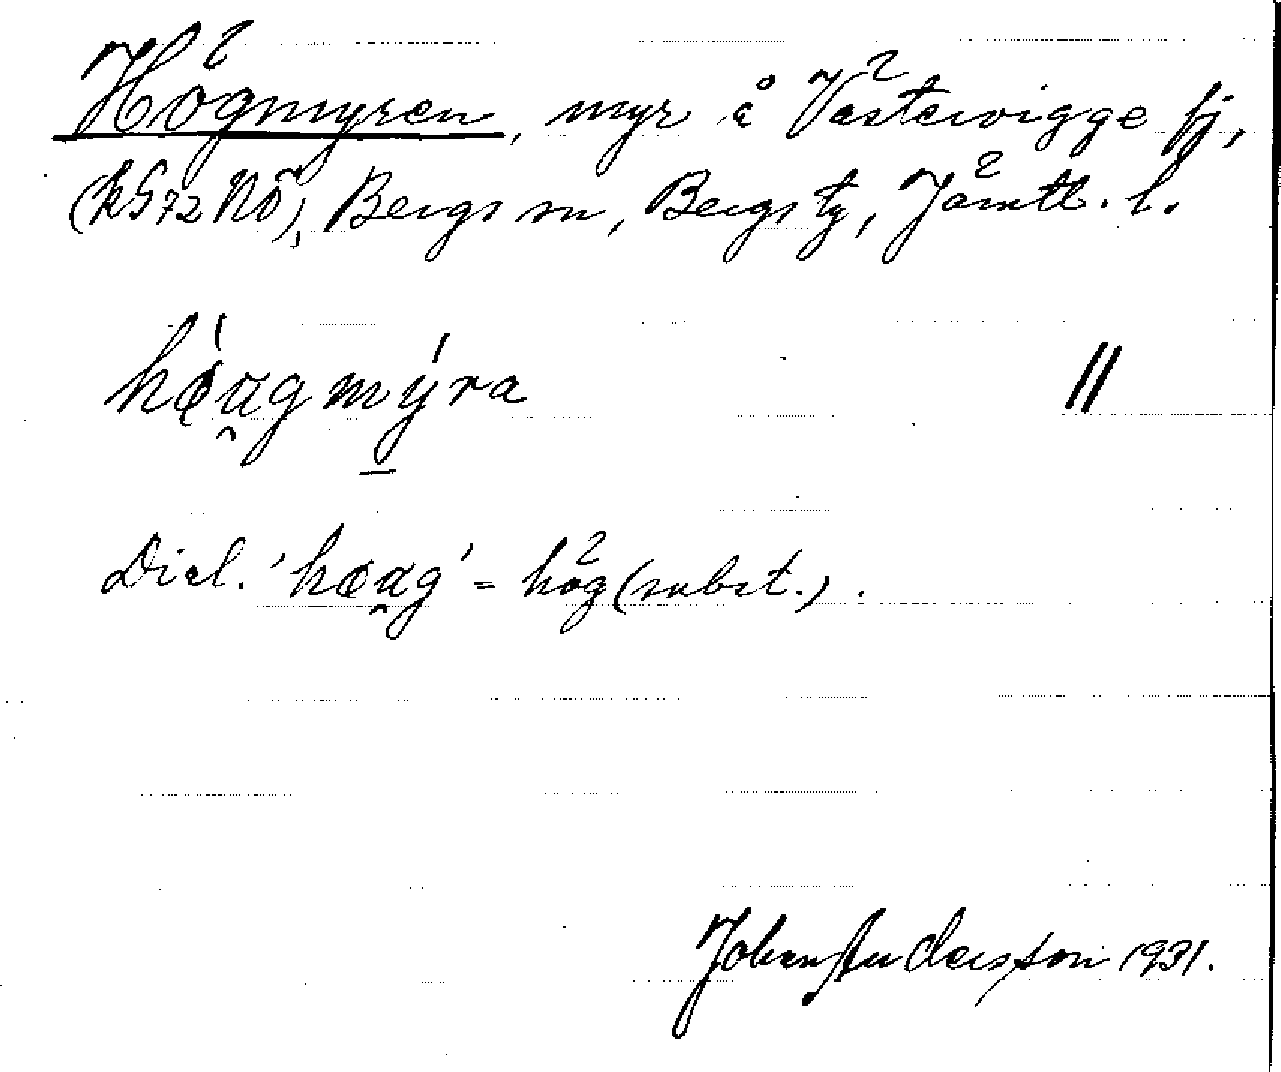 Högmyren, myr å Västervigge fj,
(kS 72 NÖ), Bergs sn, Bergs tg, Jämtl. l.
hǿαgmýra //
Dial. 'høαg' = hög (subst.).
Johan Andersson 1931.